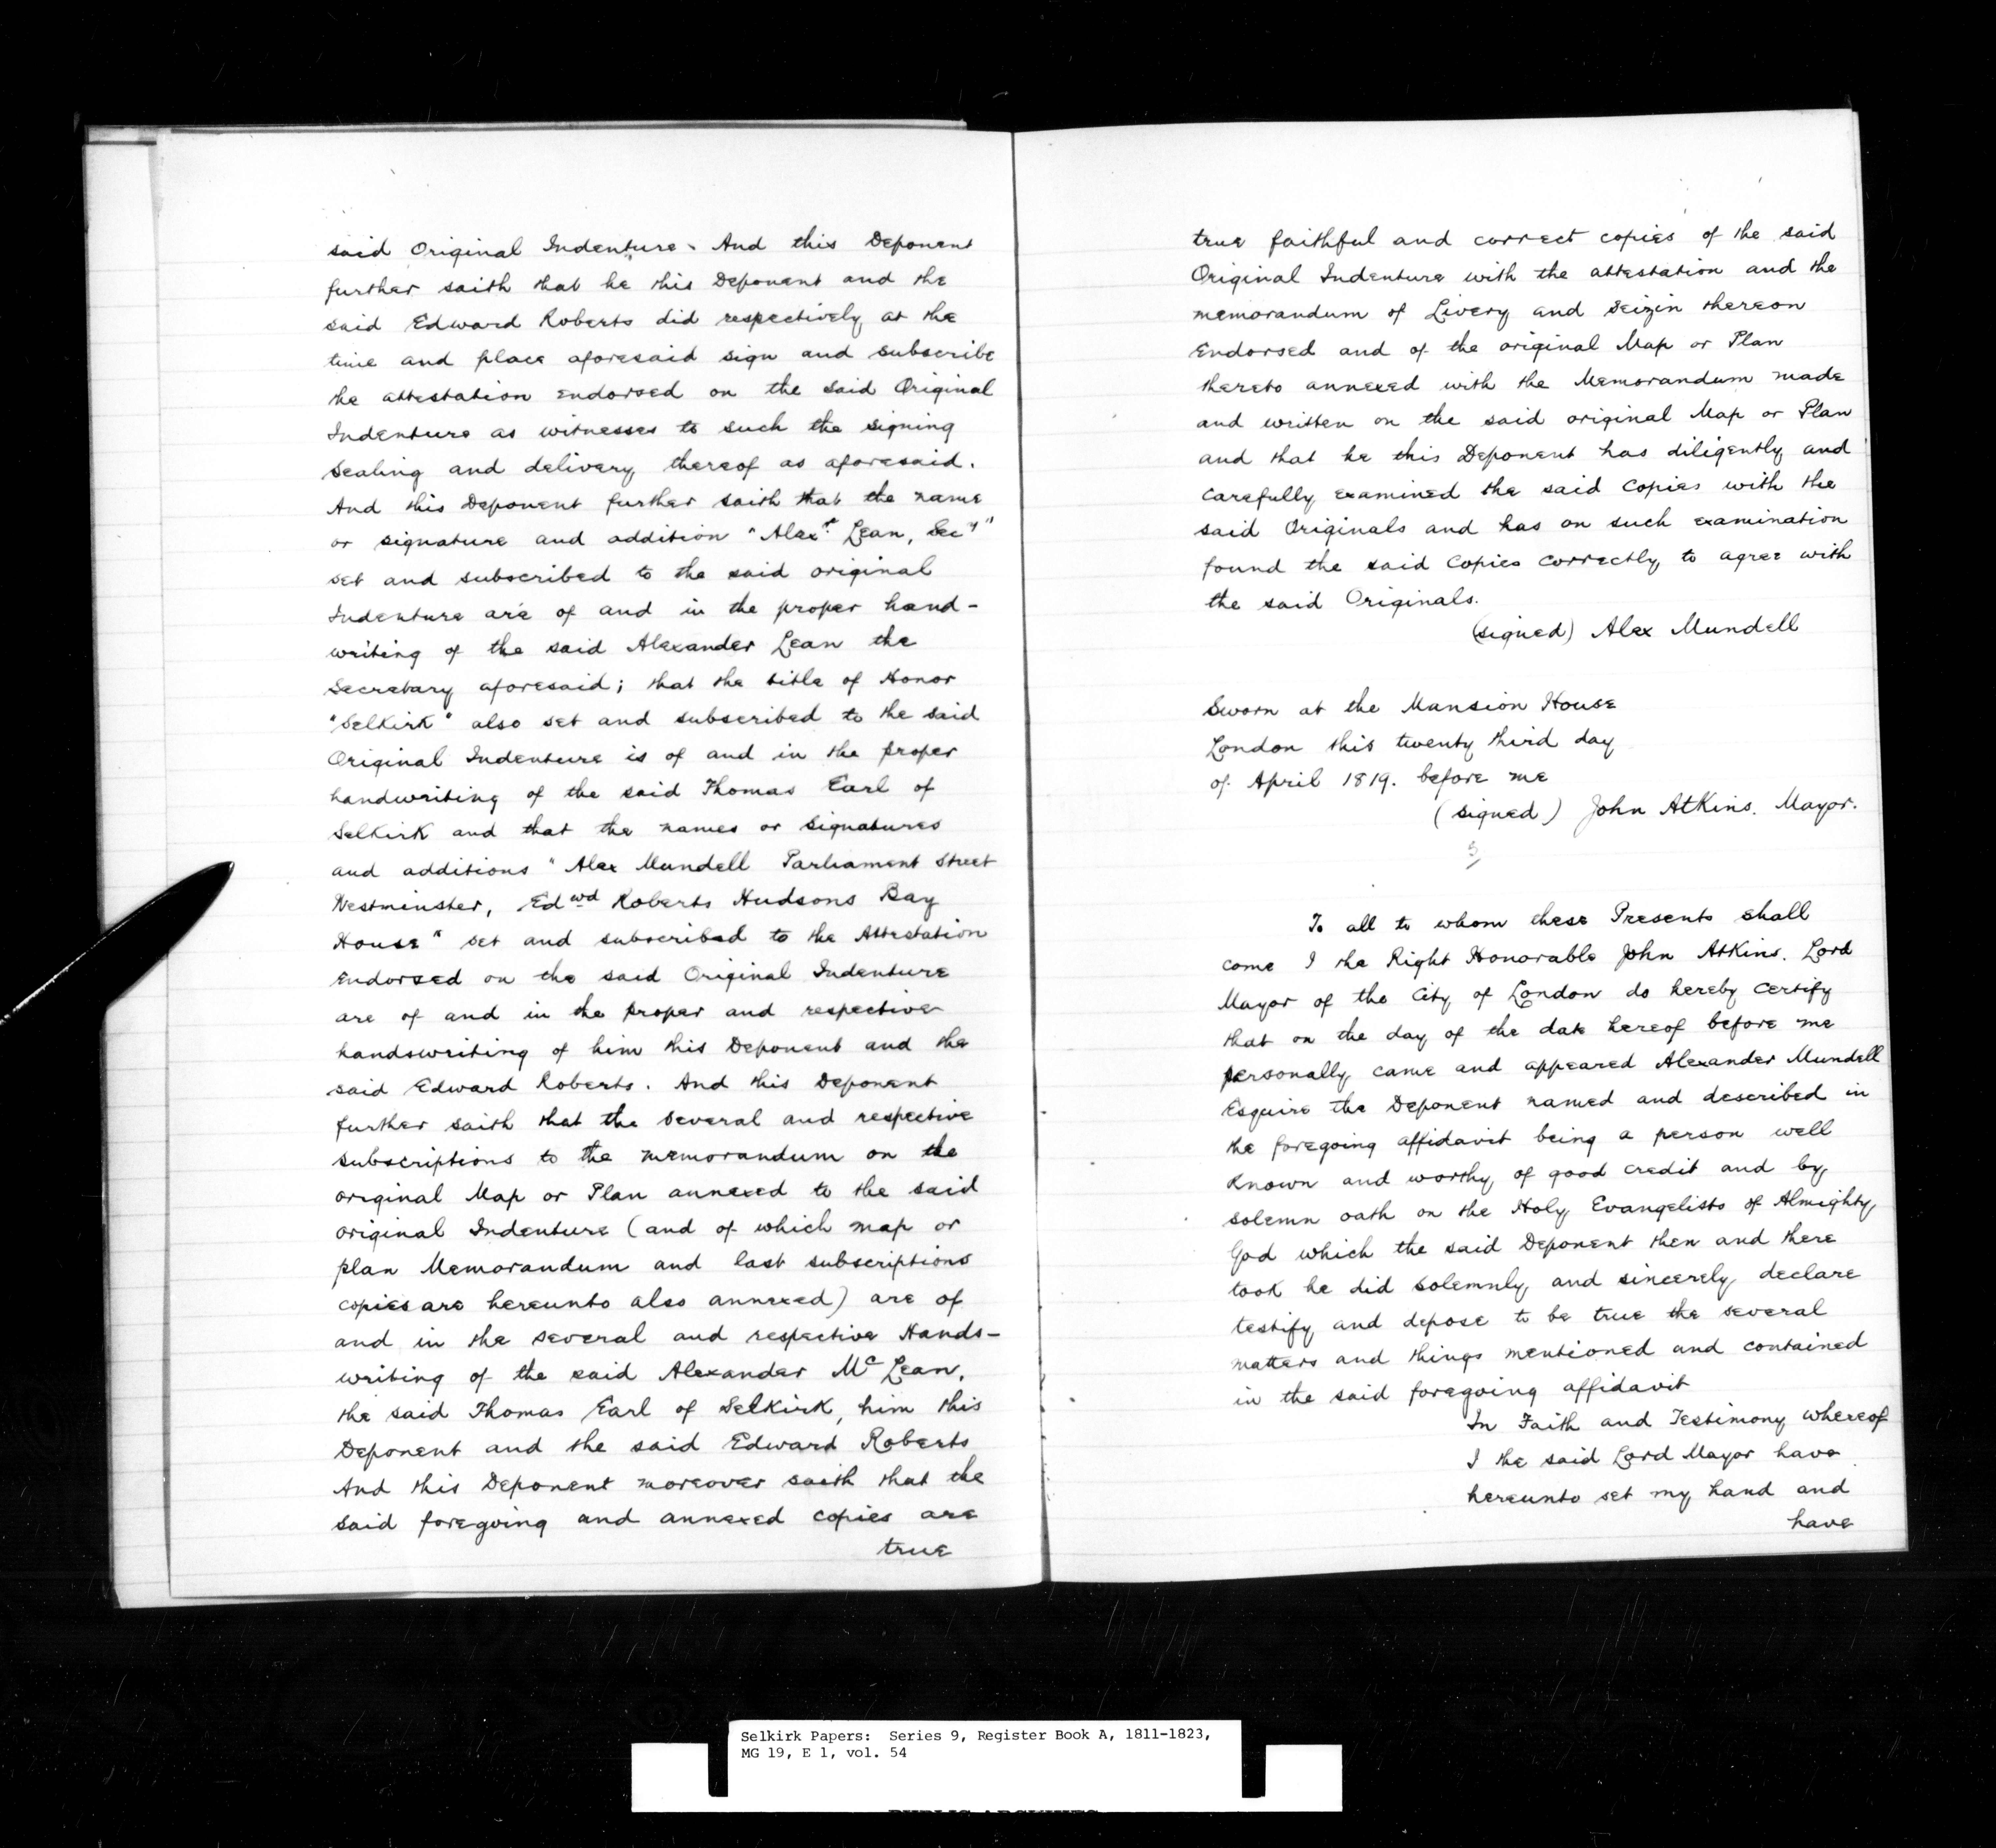 said Original Indenture. And this Deponent
further saith that he this Deponent and the
said Edward Roberts did respectively at the
time and place aforesaid sign and subscribe
the attestation endorsed on the said Original
Indenture as witnesses to such the signing
Sealing and delivery thereof as aforesaid.
And this Deponent further saith that the name
or signature and addition "Alexr Lean, Secy"
set and subscribed to the said original
Indenture are of and in the proper hand-
writing of the said Alexander Lean the
Secretary aforesaid; that the title of Honor
"Selkirk" also set and subscribed to the said
Original Indenture is of and in the proper
handwriting of the said Thomas Earl of
Selkirk and that the names or signatures
and additions "Alex Mundell Parliament Street
Westminster, Edwd Roberts Hudsons Bay
House" set and subscribed to the Attestation
endorsed on the said Original Indenture
are of and in the proper and respective
handswriting of him this Deponent and the
said Edward Roberts. And this Deponent
further saith that the several and respective
subscriptions to the memorandum on the
original Map or Plan annexed to the said
original Indenture (and of which map or
plan Memorandum and last subscriptions
copies are hereunto also annexed) are of
and in the several and respective Hands-
writing of the said Alexander Mc Lean,
the said Thomas Earl of Selkirk, him this
Deponent and the said Edward Roberts
And this Deponent moreover saith that the
said foregoing and annexed copies are
true
true faithful and correct copies of the said
Original Indenture with the attestation and the
memorandum of Livery and Seizin thereon
Endorsed and of the original Map or Plan
thereto annexed with the Memorandum made
and written on the said original Map or Plan
and that he this Deponent has diligently and
carefully examined the said Copies with the
said Originals and has on such examination
found the said Copies correctly to agree with
the said Originals.
(signed) Alex Mundell
Sworn at the Mansion House
London this twenty third day
of April 1819. before me
(signed) John Atkins. Mayor.
To all to whom these Presents shall
come I the Right Honorable John Atkins. Lord
Mayor of the City of London do hereby certify
that on the day of the date hereof before me
personally came and appeared Alexander Mundell
Esquire the Deponent named and described in
the foregoing affidavit being a person well
known and worthy of good credit and by
solemn oath on the Holy Evangelists of Almighty
God which the said Deponent then and there
took he did solemnly and sincerely declare
testify and depose to be true the several
matters and things mentioned and contained
in the said foregoing affidavit
In Faith and Testimony whereof
I the said Lord Mayor have
hereunto set my hand and
have
Selkirk Papers: Series 9, Register Book A, 1811-1823,
MG 19, E 1, vol. 54